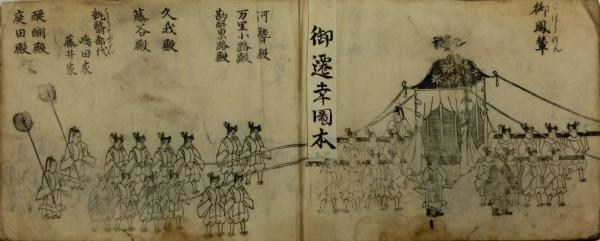 御鳳輦
御遷幸圖本
河鰭殿
万里小路殿
勘解由小路殿
久我殿
藤谷殿
嶋田家
藤井家
醍醐殿
庭田殿